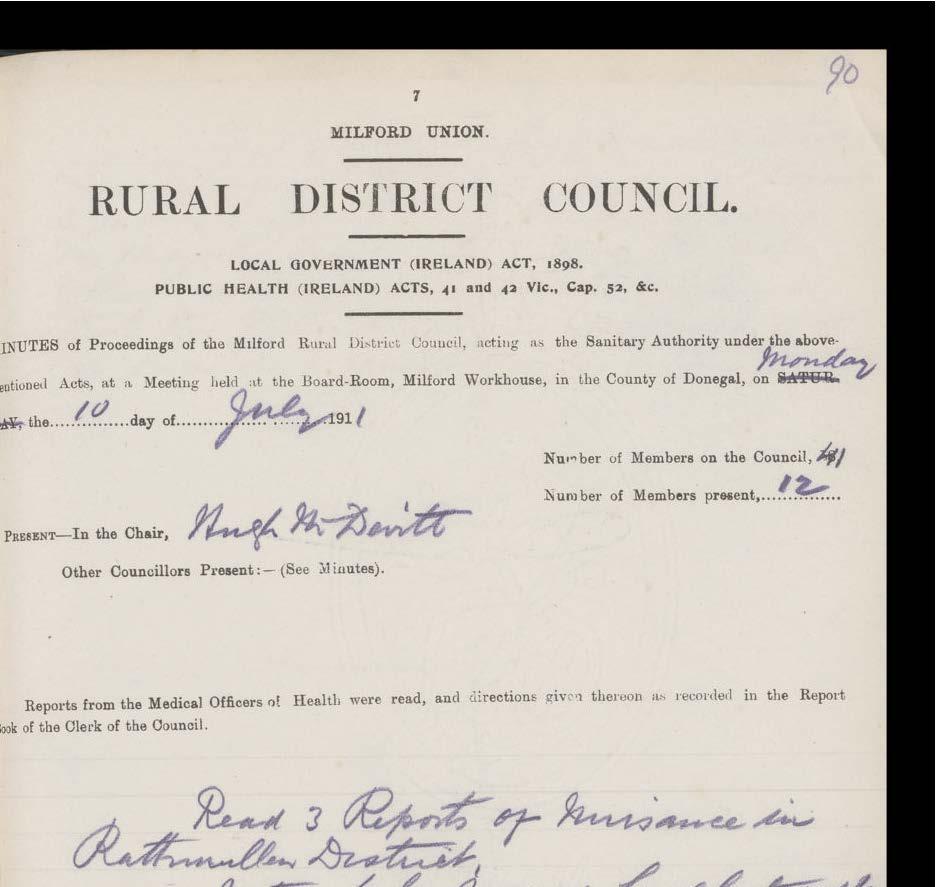 90
7
MILFORD UNION.
RURAL DISTRICT COUNCIL.
LOCAL GOVERNMENT (IRELAND) ACT, 1898.
PUBLIC HEALTH (IRELAND) ACTS, 41 and 42 Vic., Cap. 52, &c.
INUTES of Proceedings of the Milford Rural District Council, acting as the Sanitary Authority under the above-
Monday
entioned Acts, at a Meeting held at the Board-Room, Milford Workhouse, in the County of Donegal, on SATUR-
AY, the 10 day of July 1911
Number of Members on the Council,
Number of Members present, 12
PRESENT—In the Chair, Hugh McDevitt
Other Councillors Present:— (See Minutes).
Reports from the Medical Officers of Health were read, and directions given thereon as recorded in the Report
ook of the Clerk of the Council.
Read 3 Reports of Nuisance in
Rathmullen District,